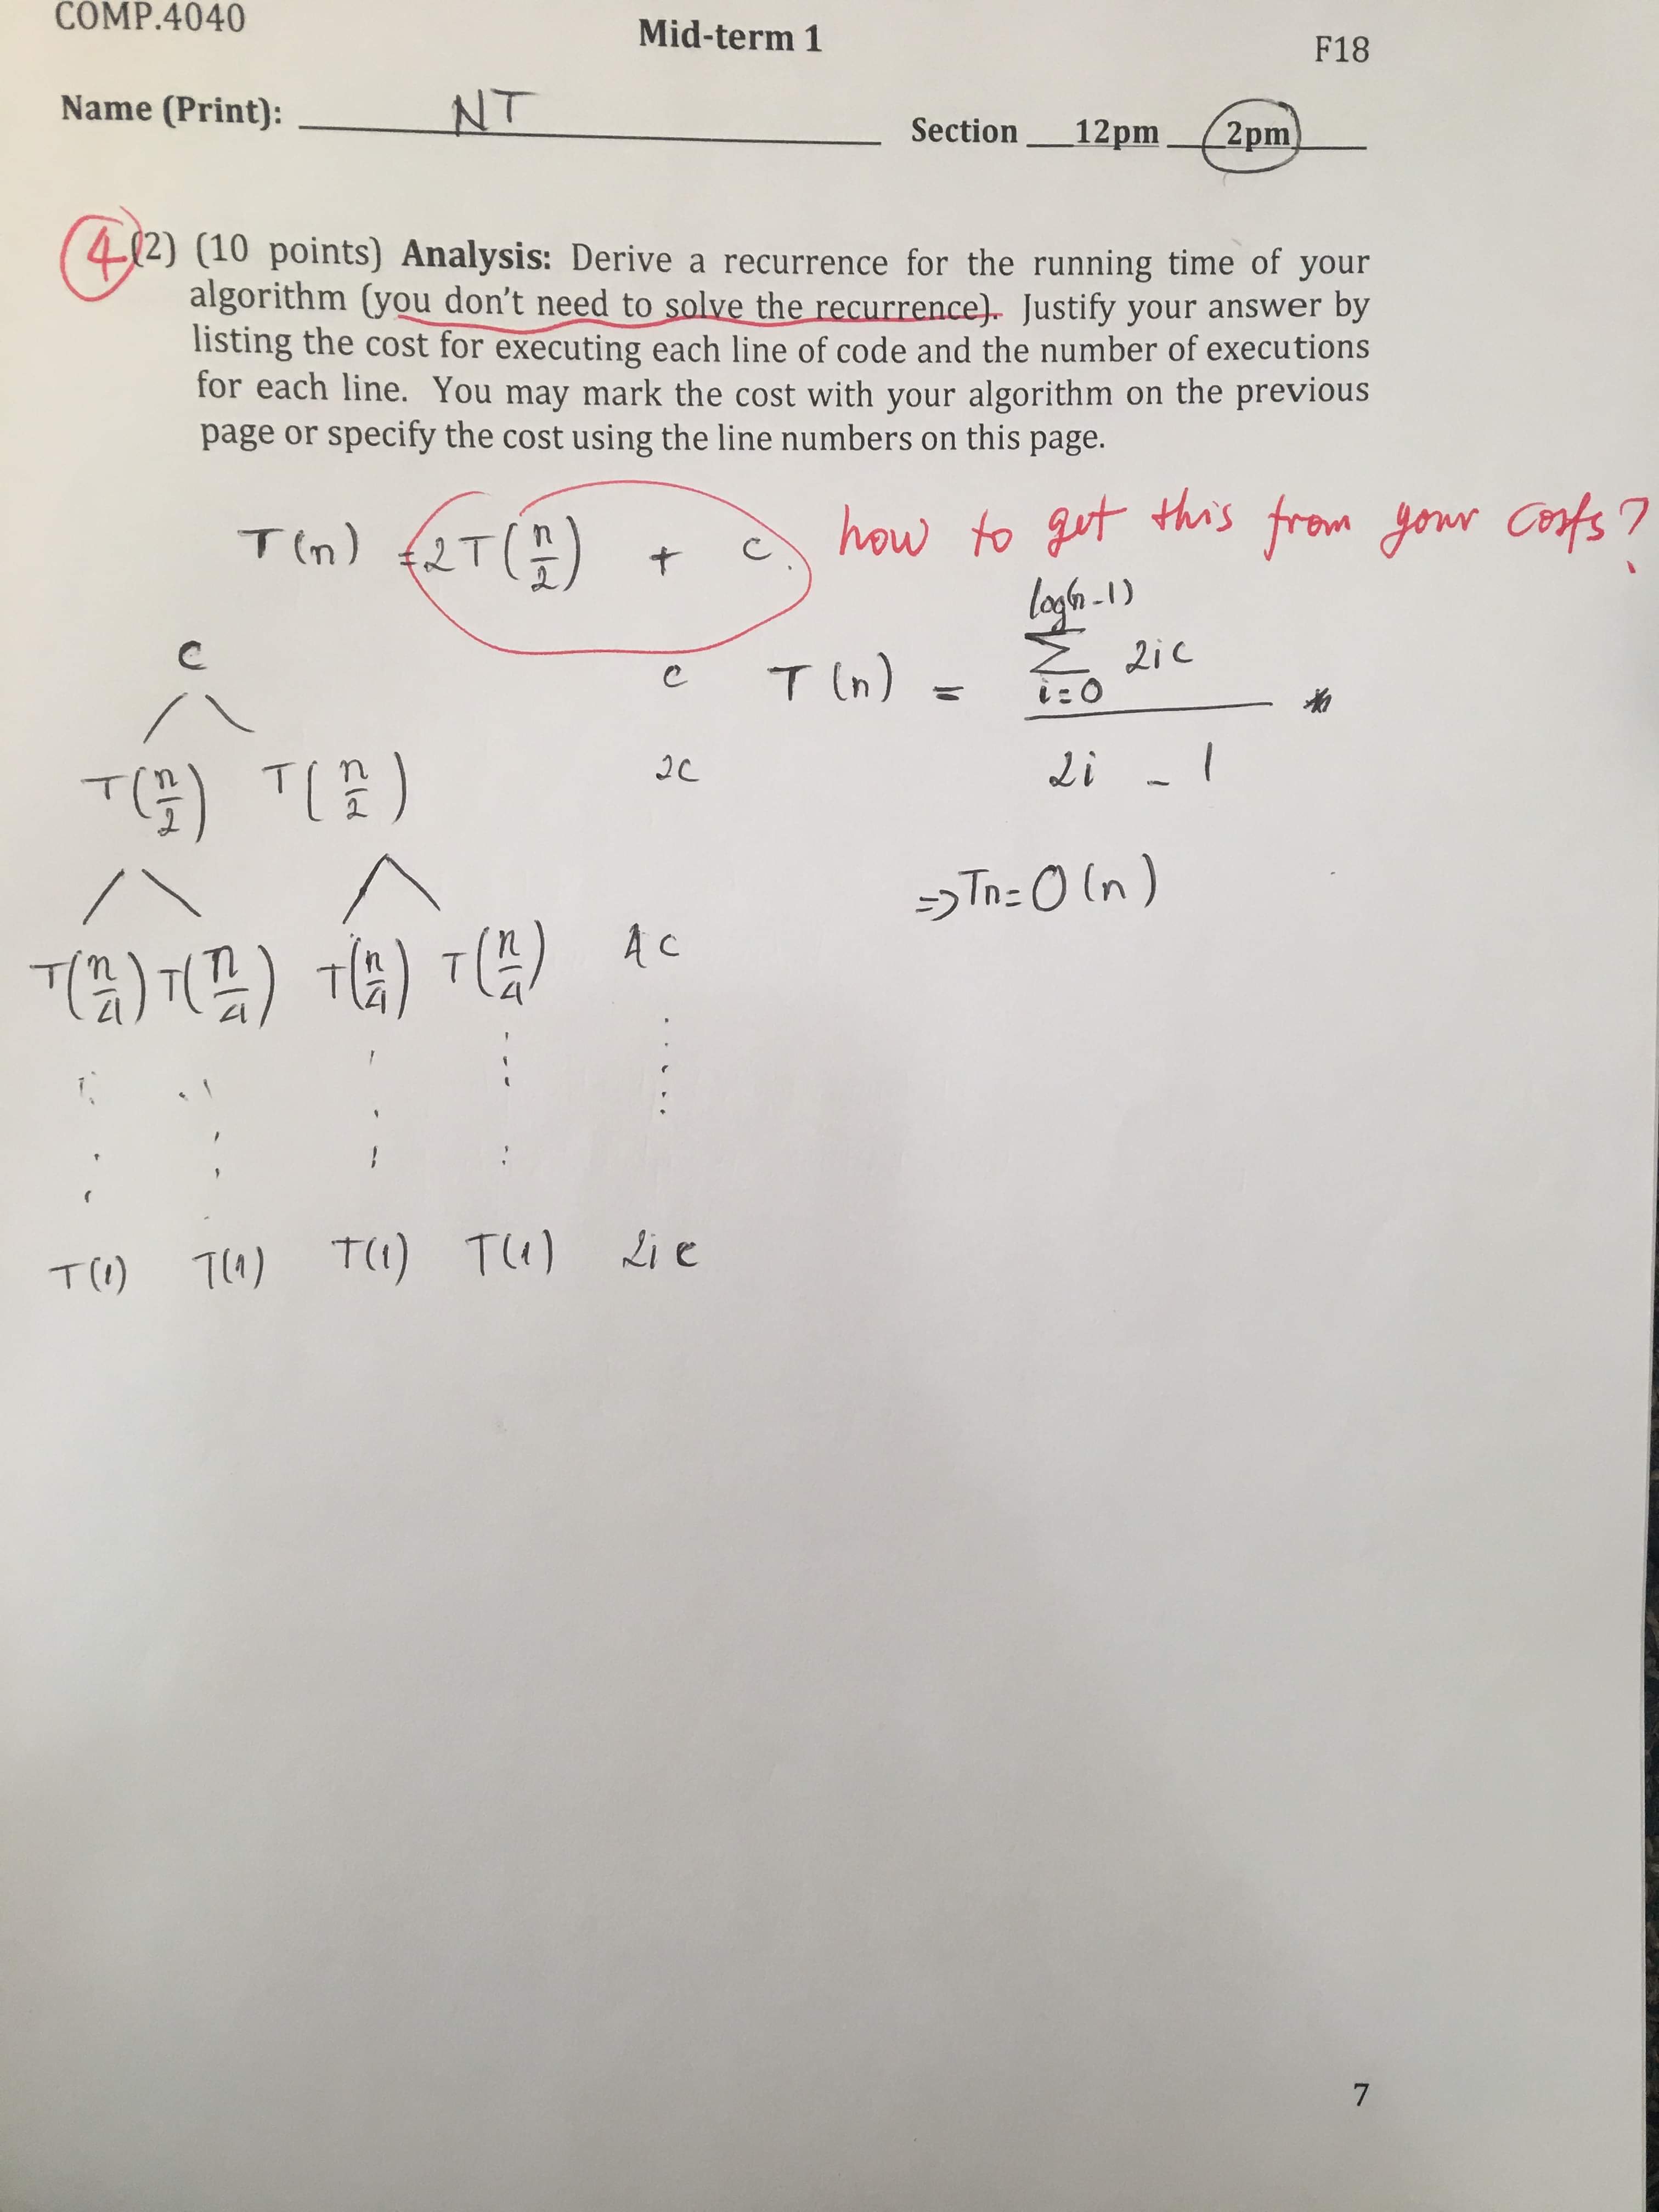 COMP.4040
Mid-term 1
F18
Name (Print): NT
Section 12pm 2pm
4 (2) (10 points) Analysis: Derive a recurrence for the running time of your
algorithm (you don't need to solve the recurrence). Justify your answer by
listing the cost for executing each line of code and the number of executions
for each line. You may mark the cost with your algorithm on the previous
page or specify the cost using the line numbers on this page.
T(n) = 2T(n/2) + c. how to get this from your costs?
log(n-1)
c c T(n) = Σ 2ic
i=0
T(n/2) T(n/2) 2c 2i - 1
⇒ Tn = O(n)
T(n/4) T(n/4) T(n/4) T(n/4) 4c
T(1) T(1) T(1) T(1) 2ic
7